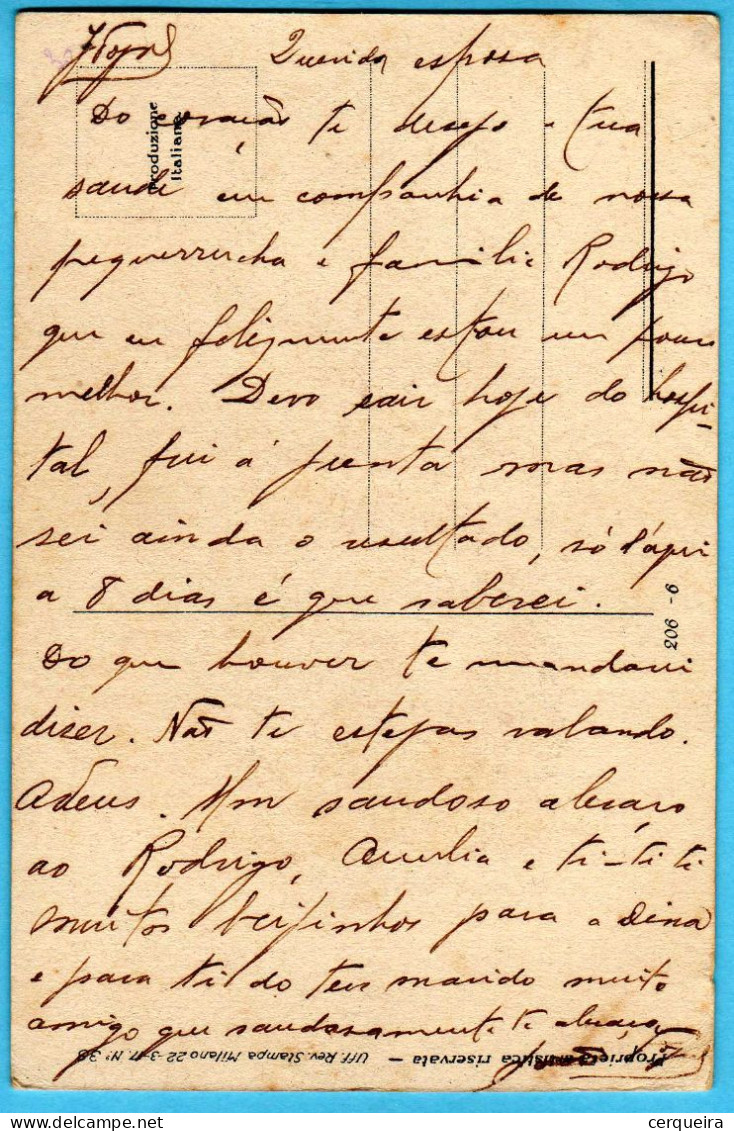 Querida esposa
Do coração te desejo a tua
saude em companhia de nossa
pequerrucha e familia Rodrigo
que eu felizmente estou um pouco
melhor. Devo sair hoje do hospi-
tal, fui á junta mas não
sei ainda o resultado, só d'aqui
a 8 dias é que saberei.
Do que houver te mandarei
dizer. Não te estejas ralando.
Adeus. Um saudoso abraço
ao Rodrigo, Amelia e ti-ti-ti
muitos beijinhos para a Dina
e para ti do teu marido muito
amigo que saudosamente te abraça
Produzione
Italiana
206 - 6
Proprietà artistica riservata — Uff. Rev. Stampa Milano 22-3-17. N° 38
cerqueira
delcampe.net